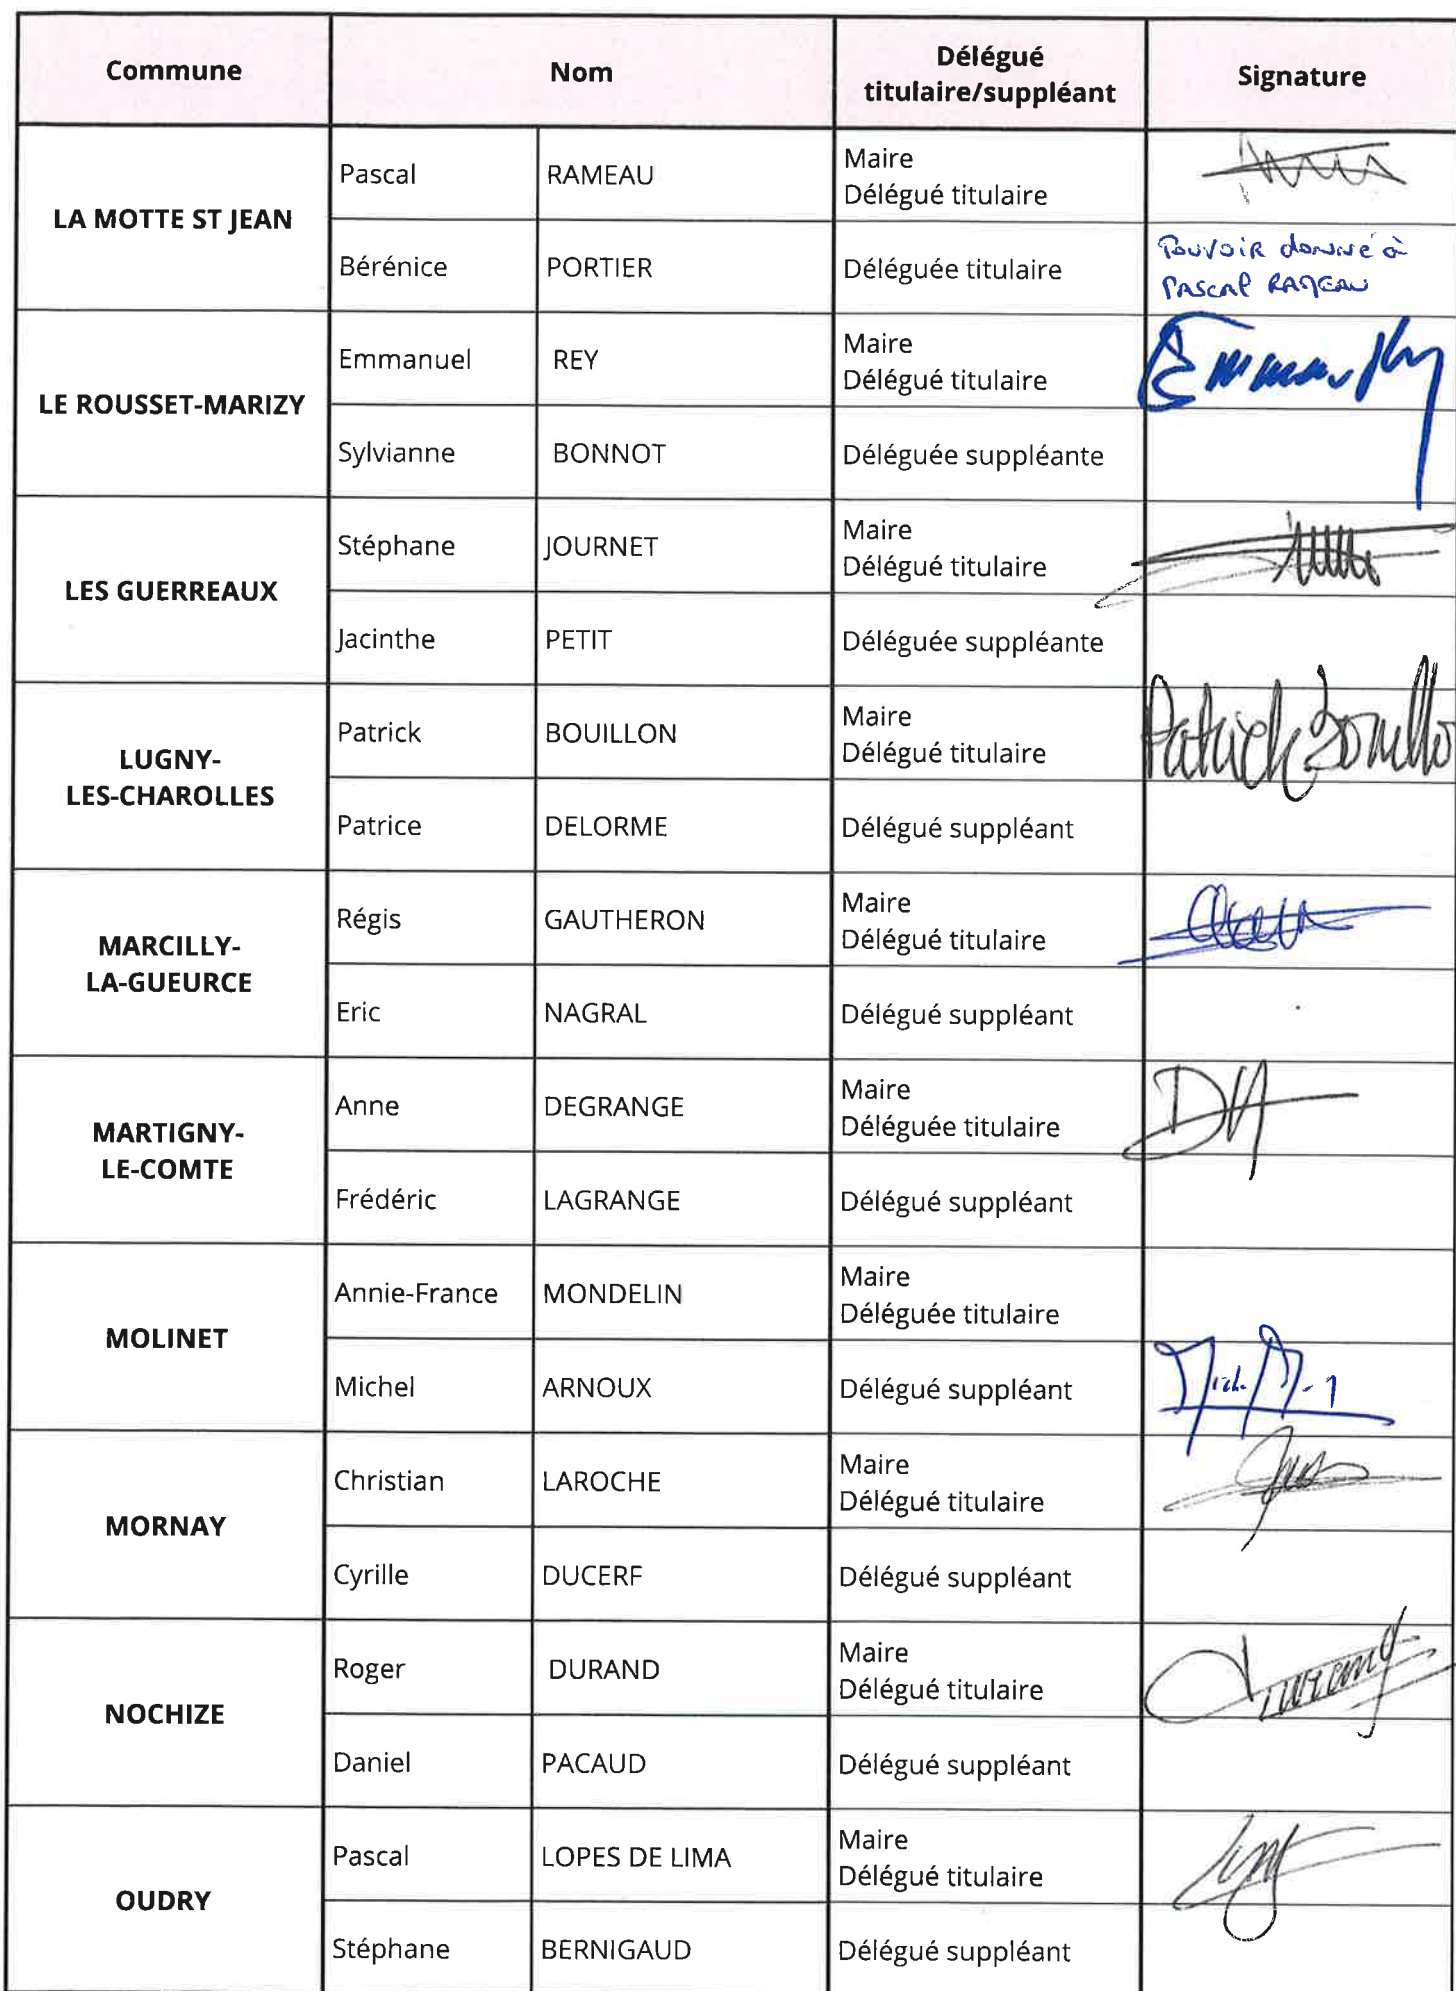 Commune
Nom
Délégué
titulaire/suppléant
Signature
LA MOTTE ST JEAN
Pascal
RAMEAU
Maire
Délégué titulaire
Bérénice
PORTIER
Déléguée titulaire
Pouvoir donné à
PASCAL RAMEAU
LE ROUSSET-MARIZY
Emmanuel
REY
Maire
Délégué titulaire
Sylvianne
BONNOT
Déléguée suppléante
LES GUERREAUX
Stéphane
JOURNET
Maire
Délégué titulaire
Jacinthe
PETIT
Déléguée suppléante
LUGNY-
LES-CHAROLLES
Patrick
BOUILLON
Maire
Délégué titulaire
Patrick Bouillo
Patrice
DELORME
Délégué suppléant
MARCILLY-
LA-GUEURCE
Régis
GAUTHERON
Maire
Délégué titulaire
Eric
NAGRAL
Délégué suppléant
MARTIGNY-
LE-COMTE
Anne
DEGRANGE
Maire
Déléguée titulaire
Frédéric
LAGRANGE
Délégué suppléant
MOLINET
Annie-France
MONDELIN
Maire
Déléguée titulaire
Michel
ARNOUX
Délégué suppléant
MORNAY
Christian
LAROCHE
Maire
Délégué titulaire
Cyrille
DUCERF
Délégué suppléant
NOCHIZE
Roger
DURAND
Maire
Délégué titulaire
Daniel
PACAUD
Délégué suppléant
OUDRY
Pascal
LOPES DE LIMA
Maire
Délégué titulaire
Stéphane
BERNIGAUD
Délégué suppléant